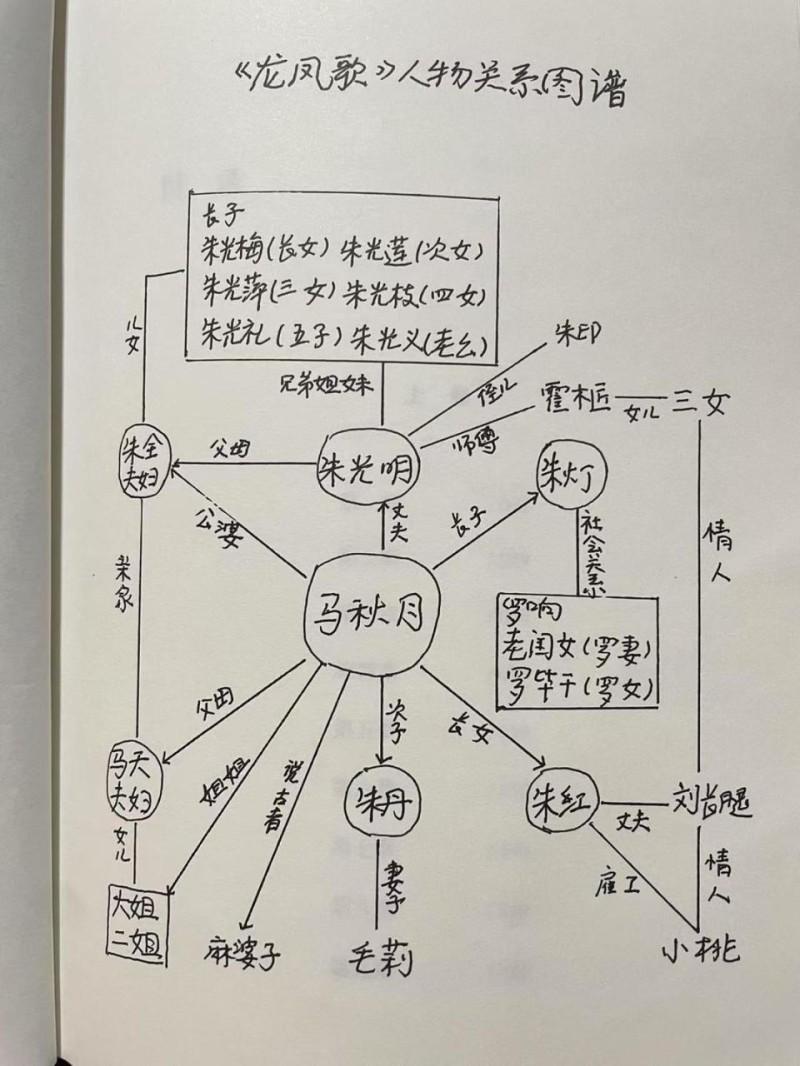 《龙凤歌》人物关系图谱
长子
朱光梅(长女) 朱光莲(次女)
朱光萍(三女) 朱光枝(四女)
朱光礼(五子) 朱光义(老幺)
儿女
兄弟姐妹
朱印
侄儿
霍柩
女儿
三女
师傅
朱全
夫妇
父母
朱光明
朱灯
公婆
丈夫
长子
社会关系
情人
亲家
马秋月
罗响
老闺女(罗妻)
罗毕干(罗女)
父母
姐姐
说古者
次子
长女
马天
夫妇
朱丹
朱红
丈夫
刘长腿
女儿
妻子
雇工
情人
大姐
二姐
麻婆子
毛莉
小桃